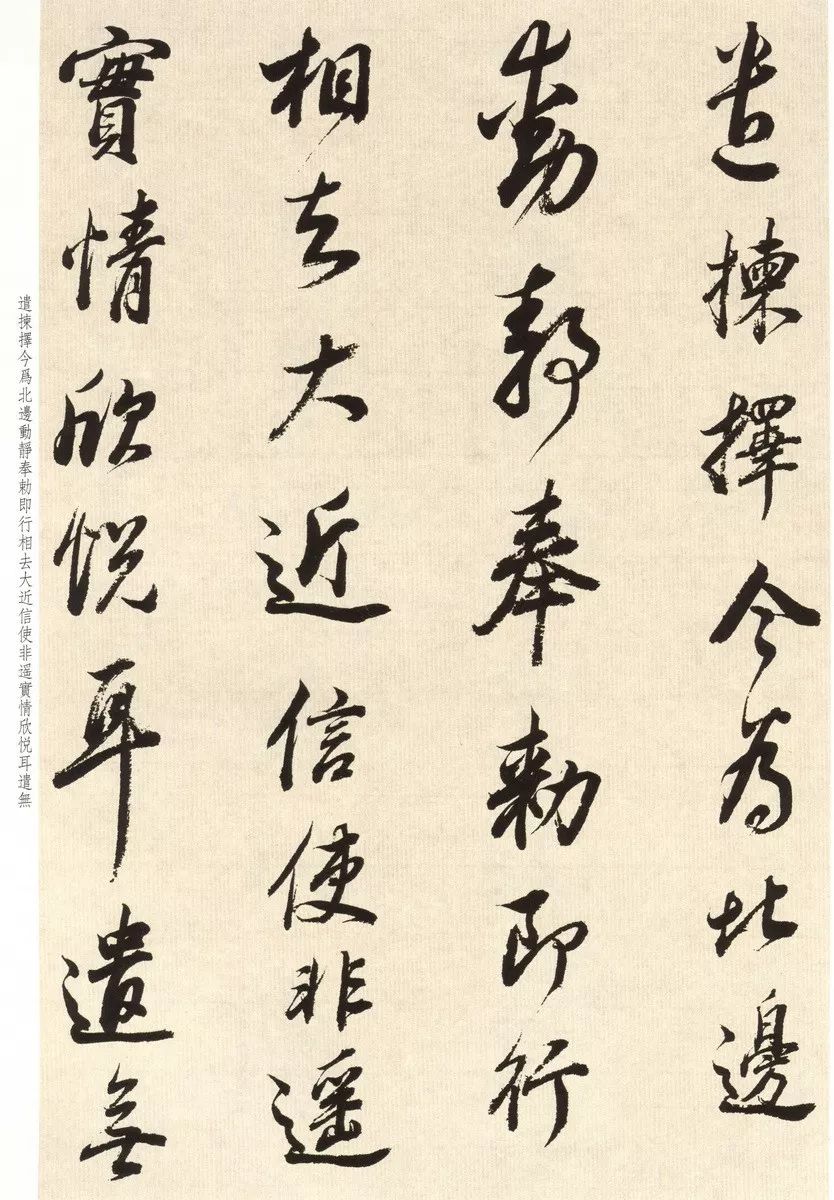 遣揀擇今為北邊
動靜奉勅即行
相去大近信使非遥
實情欣悦耳遣無
遣揀擇今爲北邊動靜奉勅即行相去大近信使非遥實情欣悦耳遣無